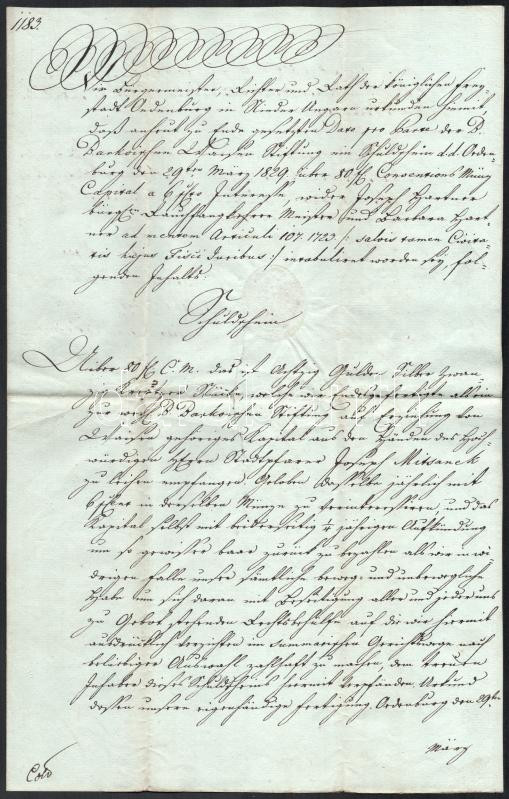 1183.
Wir Bürgermeister, Richter und Rath der königlichen Frey-
stadt Oedenburg in Nieder Ungarn urkunden hiemit
daß anheut zu Ende gesetzten Dato pro Parte der B.
Bankoischen Waisen Stiftung ein Schuldschein d.d. Oeden-
burg den 29ten März 1829 über 80 f Conventions Münz
Capital a 6 pCto Interesse, wider Joseph Hartner
bürgl. Meister und Barbara Hart-
ner ad mentem Articuli 107. 1723. /: salvis tamen Civita-
tis hujus Fisci Juribus :/ intabulirt worden sey, fol-
genden Inhalts:
Schuldschein
Ueber 80 f C. M. das ist Achtzig Gulden Silber Zwan-
zig Kreutzer Stück, welche wir Endesgefertigte als ein
zur B. Bankoischen Stiftung auf Erziehung von
Waisen gehöriges Kapital aus den Händen des Hoch-
würdigen Herrn Stadtpfarrer Joseph Mitsanek
zu leihen empfangen. Geloben dasselbe jährlich mit
6 pCto in derselben Münze zu verinteressiren, und das
Kapital selbst mit beiderseitig 1/4 jähriger Aufkündung
um so gewisser baar zurück zu bezahlen als wir in wi-
drigen Falle unser sämtliche beweg- und unbewegliche
Habe um sich daran mit Beseitigung aller und jeder uns
zu Gebot stehenden Rechtsbehülfe auf die wir hiermit
ausdrücklich verzichten im summarischen Gerichtswege nach
beliebiger Auswahl zahlhaft zu machen, dem treuen
Inhaber dieses Schuldscheins hiermit verpfänden. Urkund
dessen unsere eigenhändige Fertigung. Oedenburg den 29ten
März